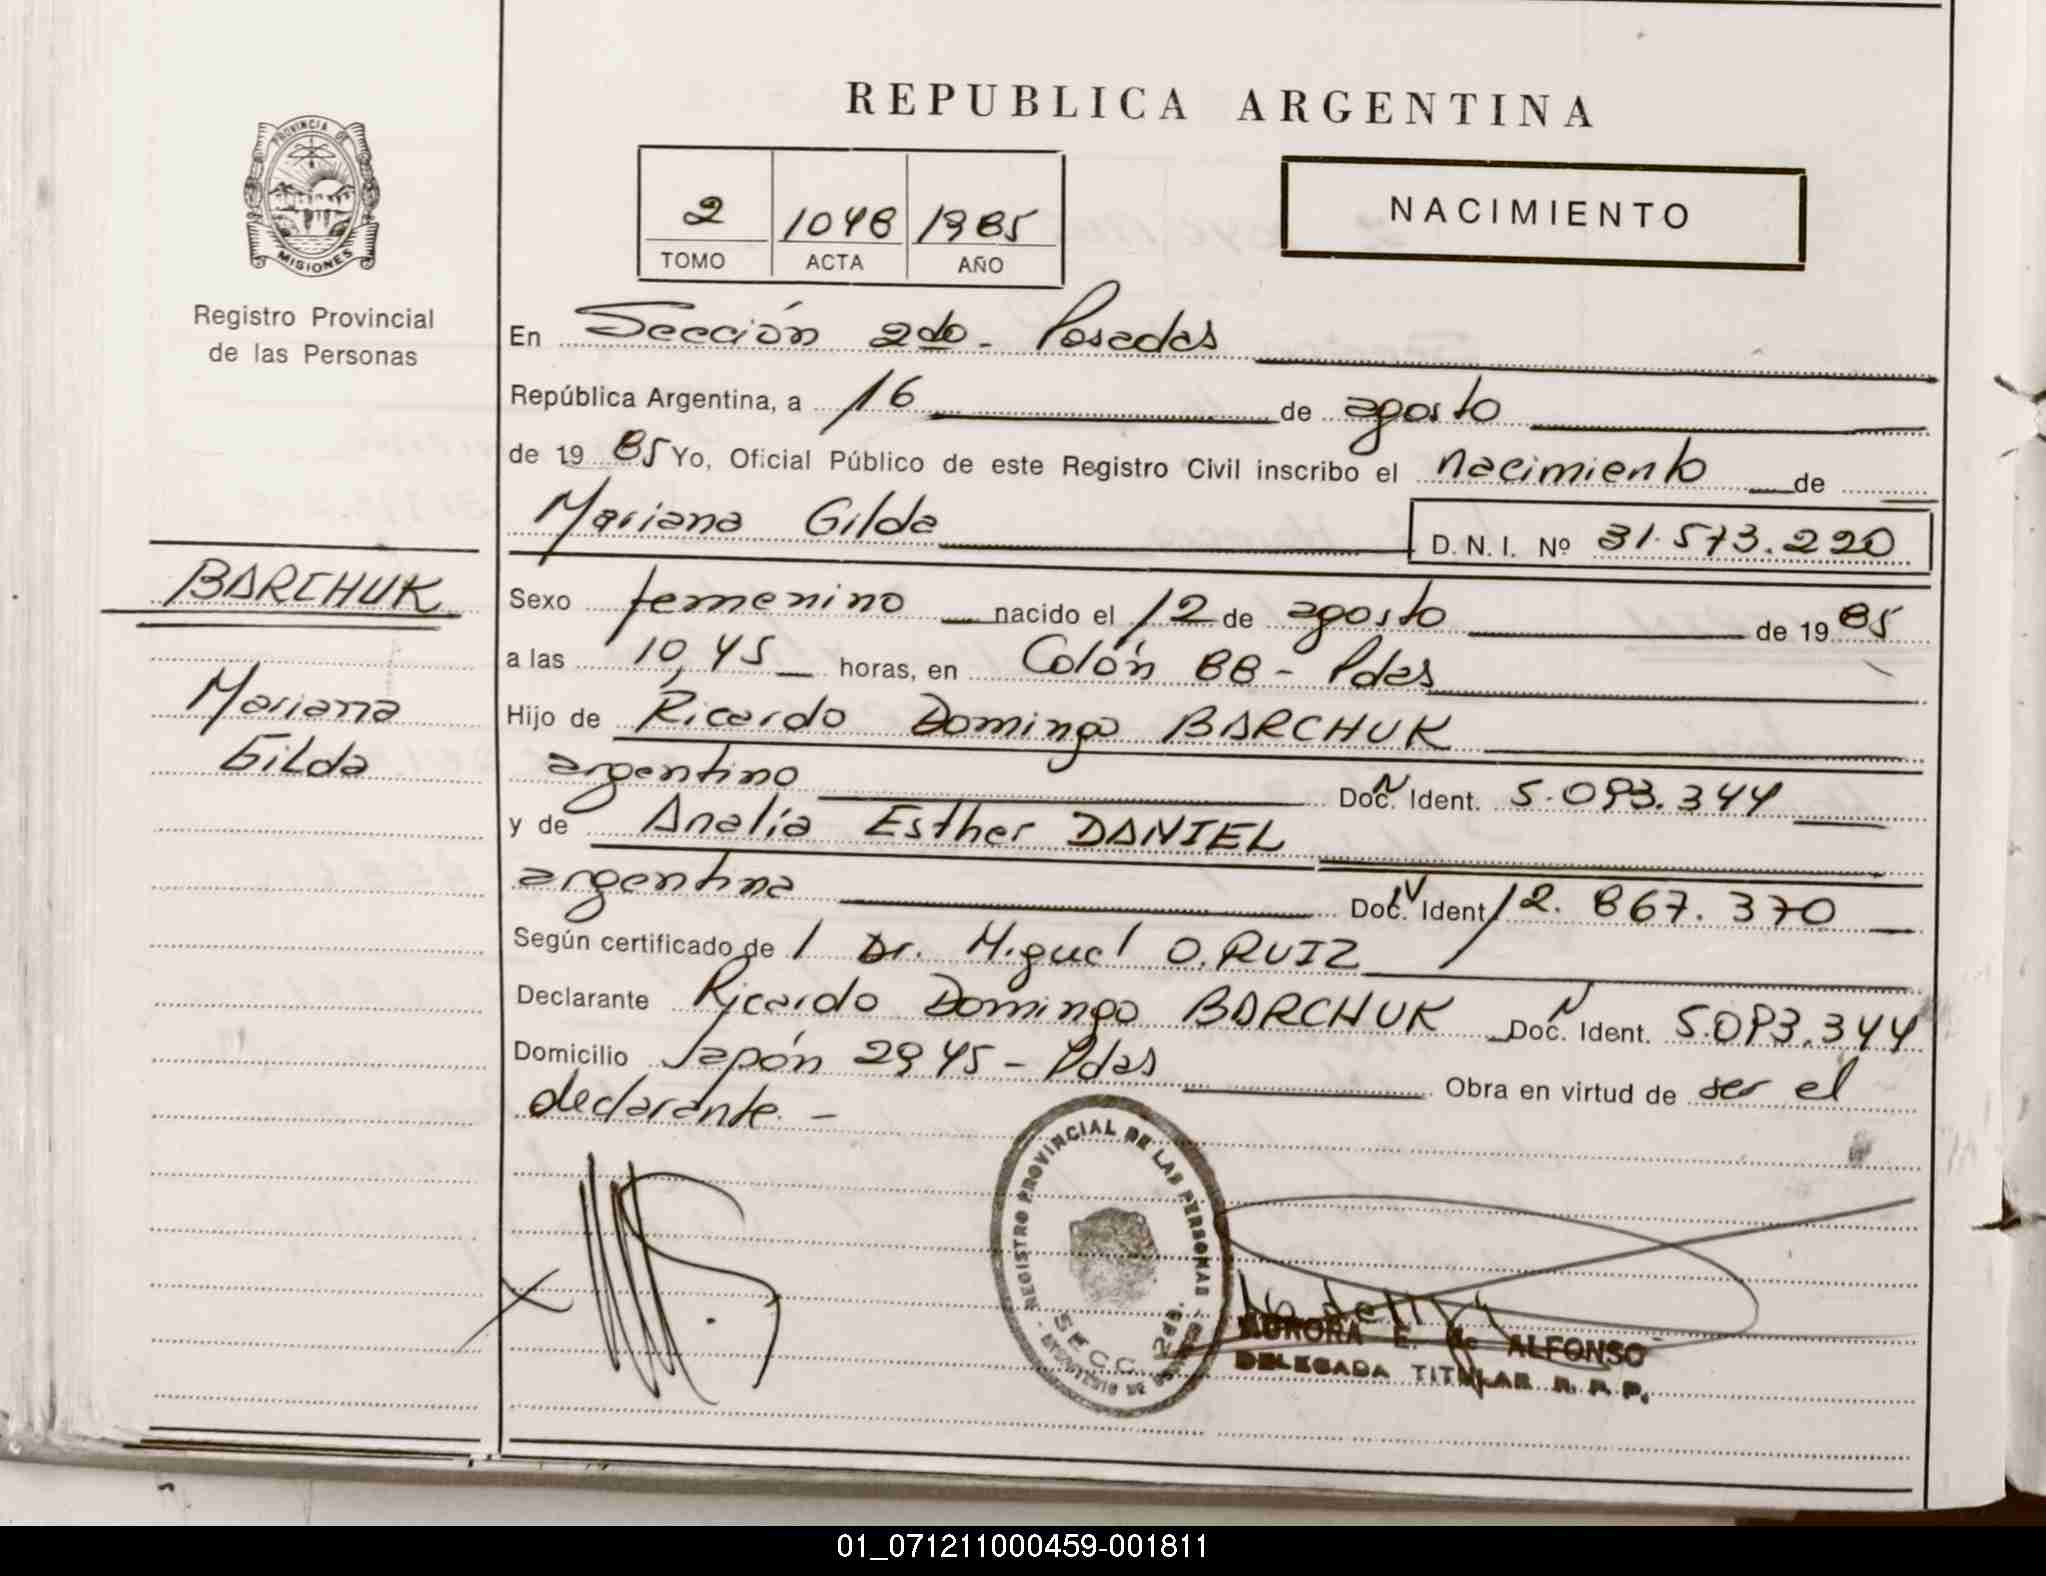 REPUBLICA ARGENTINA
PROVINCIA DE MISIONES
Registro Provincial
de las Personas
2 1048 1985
TOMO ACTA AÑO
NACIMIENTO
En Sección 2da - Posadas
República Argentina, a 16 de agosto
de 1985 Yo, Oficial Público de este Registro Civil inscribo el nacimiento de
Mariana Gilda D. N. I. Nº 31.573.220
BARCHUK
Mariana
Gilda
Sexo femenino nacido el 12 de agosto de 1985
a las 10,45 horas, en Colón 88 - Pdas
Hijo de Ricardo Domingo BARCHUK
argentino Doc. Ident. 5.093.344
y de Analía Esther DANIEL
argentina Doc. Ident. 12.867.370
Según certificado de l Dr. Miguel O. RUIZ
Declarante Ricardo Domingo BARCHUK Doc. Ident. 5.093.344
Domicilio Japón 2945 - Pdas Obra en virtud de ser el
declarante. -
REGISTRO PROVINCIAL DE LAS PERSONAS
SECC.
AURORA E. de ALFONSO
DELEGADA TITULAR R. P. P.
01_071211000459-001811